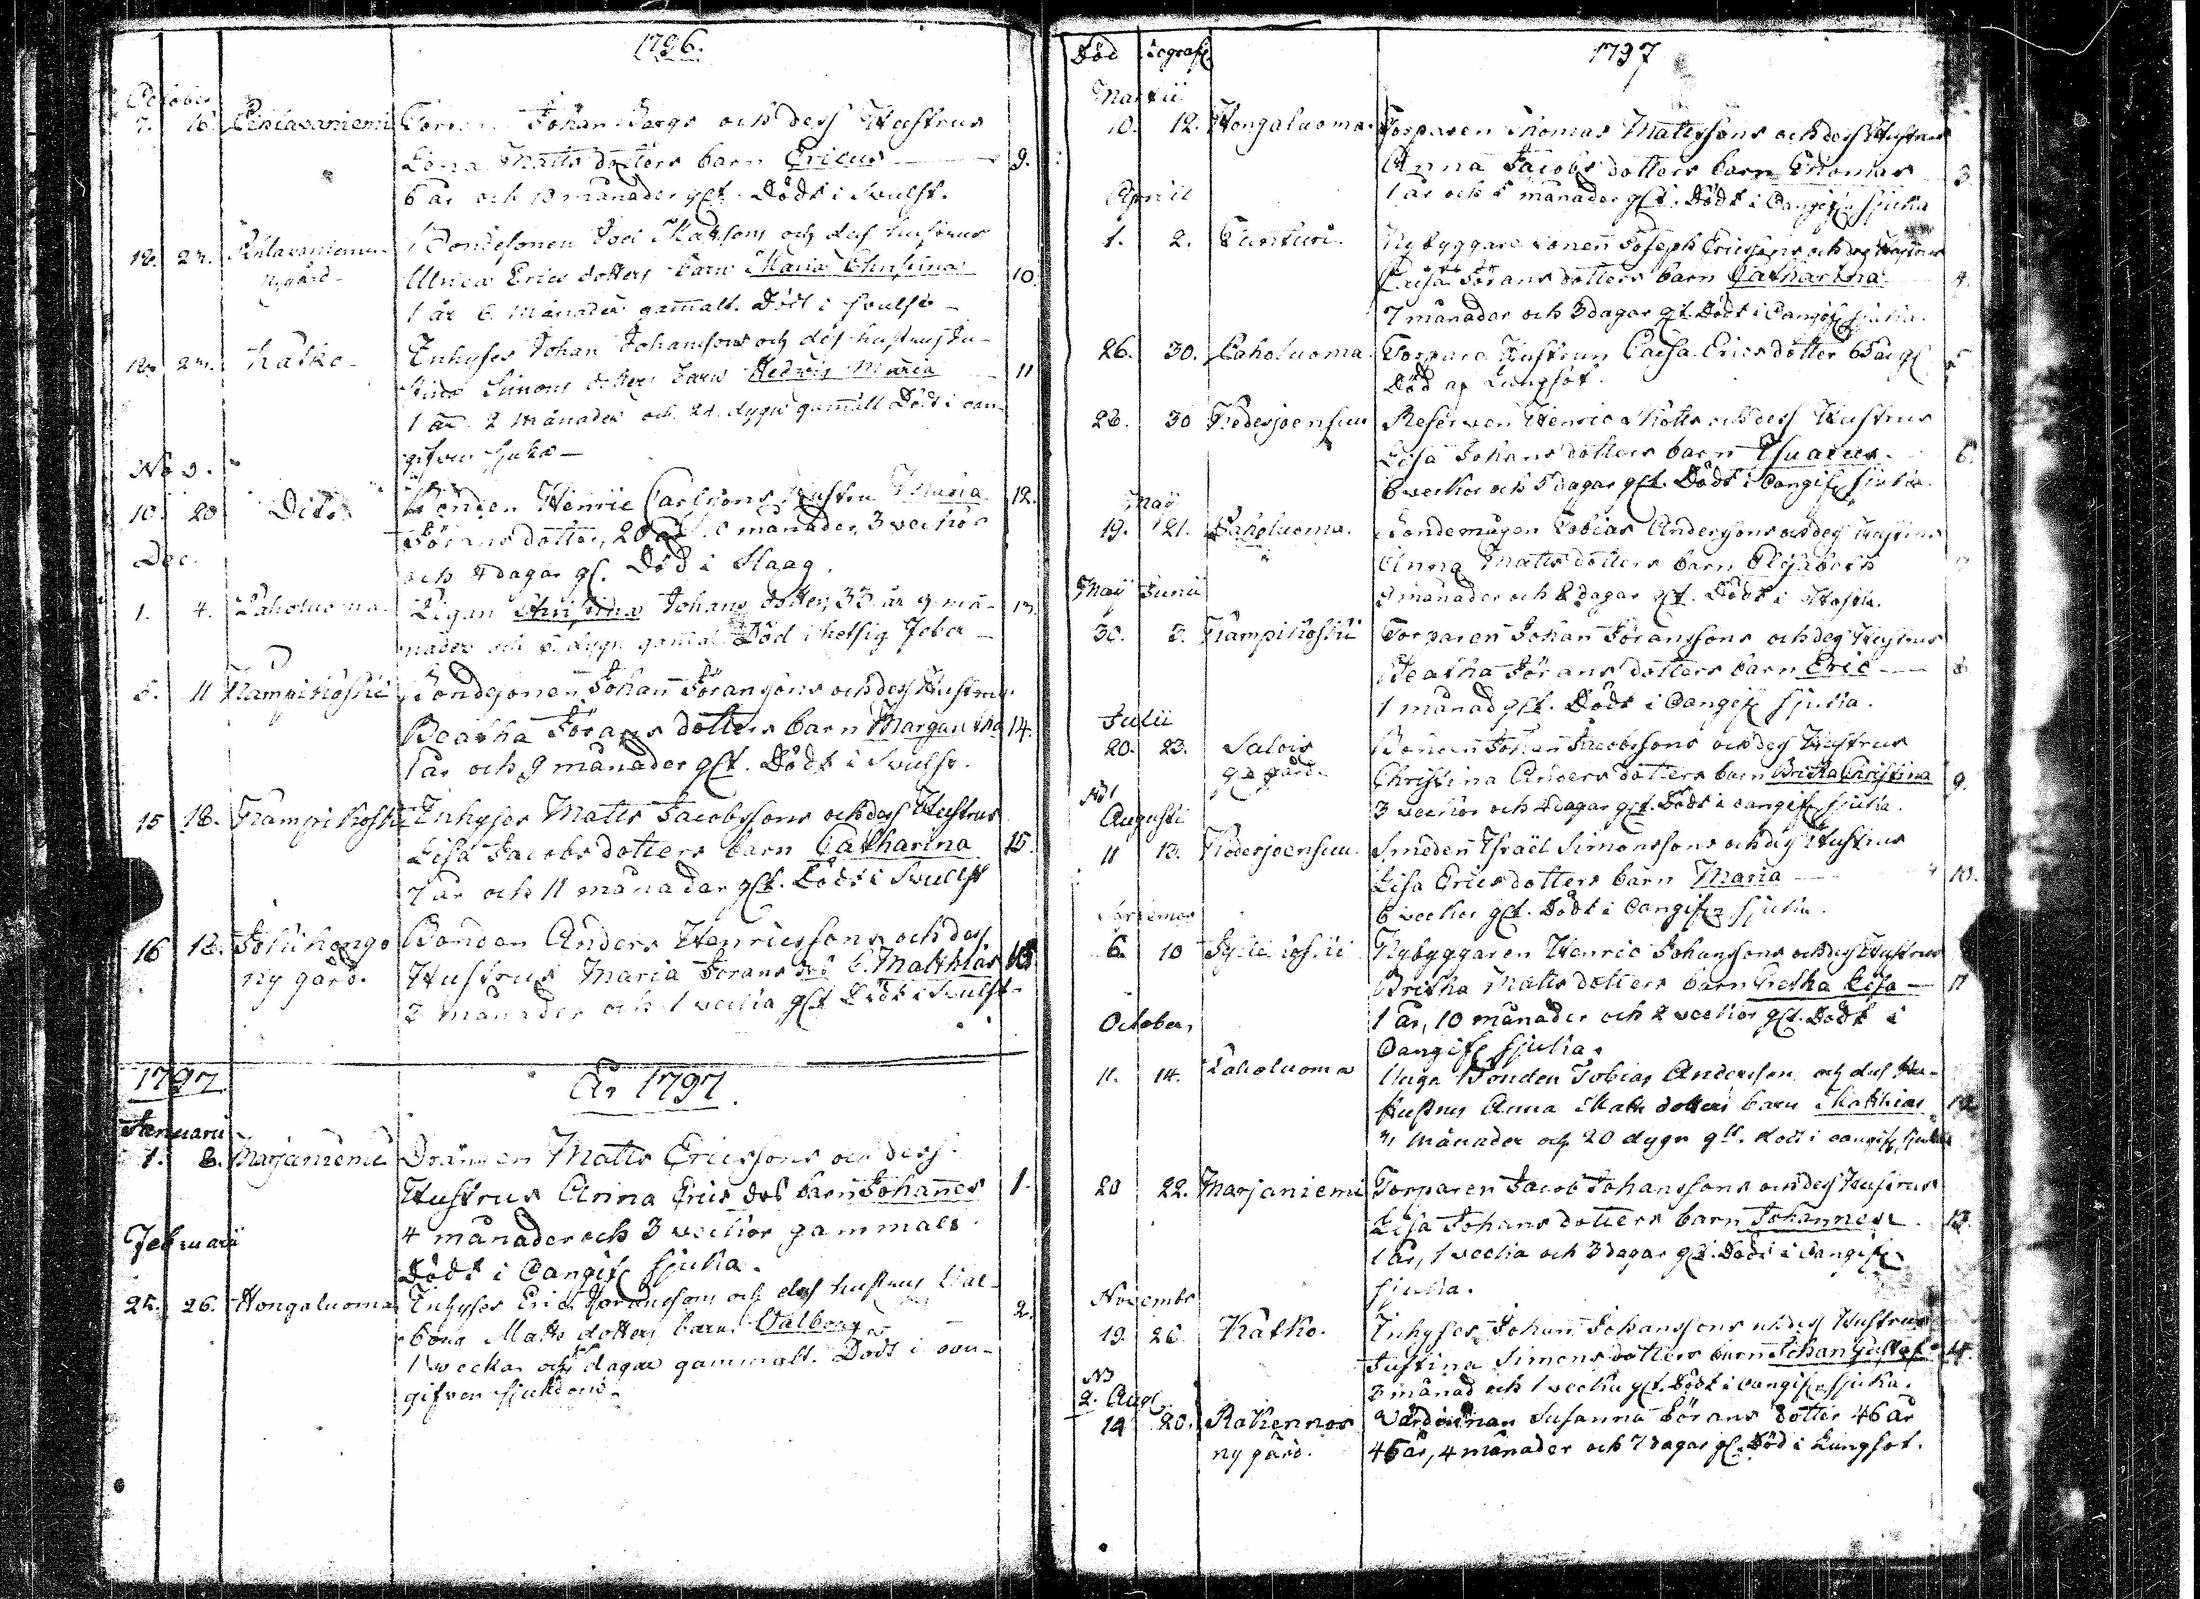 1796.
October
7. 16. Pehlavaniemi Johan Bergs och dess Hustrus
Lena Matts dotters barn Ericus 9.
6 år och 10 månader glt. Dödt i Svulst.
18. 23. Pehlavaniemi Bondesonen Matssons och dess hustrus
nygård Ulrica Erics dotters barn Maria Christina 10.
1 år 6 månader gamalt. Dödt i svulst
23. Katko Inhyses Johan Johanssons och dess hustrus Ju-
stina Simons dotters barn Hedvig Maria 11
1 år 2 månader och 24 dygn gamalt Dödt i oan-
gifven sjuka
Nov.
10. 20 Dito Bonden Henric Carlssons Hustru Maria 12.
Jörans dotter, 20 år månader, 3 veckor
och 4 dagar gl. Död i Slaag.
Dec.
1. 4. Paholuoma Pigan Christina Johans dotter 33 år 9 må- 13.
nader och dygn gamal Död i hetsig feber
5. 11 Kampikoski Bondesonen Johan Jöransons och dess Hustrus
Beatha Jörans dotters barn Margaretha 14.
1 år och 9 månader glt. Dödt i Svulst.
15 18. Kampikoski Inhyses Matts Jacobssons och dess Hustrus
Lisa Jacobs dotters barn Catharina 15.
7 år och 11 månader glt. Dödt i Svulst
16 18. Jokikongo Bonden Anders Henricssons och dess
ny gård. Hustrus Maria Jörans drs b. Matthias 16
2 månader och 1 vecka glt Dödt i Svulst
1797 År 1797.
Januarii
1. 8. Marjaniemi Drängen Matts Ericssons och dess
Hustrus Anna Erics drs barn Johannes 1.
4 månader och 3 veckor gammalt
Dödt i Oangifn sjuka.
Februarii
26. Hongaluoma Inhyses Eric Jöranssons och dess hustrus Val-
borg Matts dotters barn Valborg 2.
veckor och dagar gammalt. Dödt i oan-
gifven sjukdom
Död Begrafn 1797
Martii
10. 12. Hongaluoma Torparen Thomas Mattssons och dess Hustrus
Anna Jacobs dotters barn Thomas 3
1 år och 5 månader glt. Dödt i Oangifn sjuka
April
1. 2. Panturi Nybyggare sonen Joseph Ericssons och dess Hustrus
Caisa Jörans dotters barn Catharina 4.
7 månader och 3 dagar glt. Dödt i Oangifn sjuka.
26. 30. Paholuoma Torpare Hustrun Caisa Erics dotter 65 år gl 5
Död af Lungsot.
26. 30 Kedesjoensuu Reserven Henric Matts och dess Hustrus
Lisa Johans dotters barn 6.
6 veckor och 5 dagar glt. Dödt i Oangifn sjuka.
Maij
19. 21. Paholuoma. Bondemågen Tobias Anderssons och dess Hustrus
Anna Matts dotters barn Elisabeth
9 månader och 2 dagar glt. Dödt i Hosta.
Maij Junii
30. 3. Kampikoski Torparen Johan Jöranssons och dess Hustrus
Beatha Jörans dotters barn Eric 8
1 månad glt. Dödt i Oangifn sjuka.
Julii
20. 23. Salois Bonden Johan Jacobssons och dess Hustrus
gla gård. Christina Anders dotters barn Britha Christina 9.
3 veckor och 4 dagar glt. Dödt i oangifn sjuka.
Augusti
11 13. Kedesjoensuu Smeden Israël Simonssons och dess Hustrus
Lisa Erics dotters barn Maria 10.
6 veckor glt. Dödt i Oangifn sjuka.
6. 10 Nybyggaren Henric Johanssons och dess Hustrus
Britha Matts dotters barn Gretha Lisa 11
1 år, 10 månader och 2 veckor glt. Dödt i
October,
Oangifn sjuka.
11. 14. Paholuoma Unga Bonden Tobias Andersson och dess Hu-
strus Anna Matts dotters barn Matthias 12
månader och 20 dygn glt. dödt i oangifn sjuka
20 22. Marjaniemi Torparen Jacob Johanssons och dess Hustrus
Lisa Johans dotters barn Johannes 13.
1 år, 1 vecka och 3 dagar glt. Dödt i Oangifn
sjuka.
Novembr
19. 26. Katko. Inhyses Johan Johanssons och dess Hustrus
Justina Simons dotters barn Johan Gustaf 14.
3 månad och 1 vecka glt. Dödt i oangifn sjuka.
NB
2. Aug.
14 20. Rakennos Värdinnan Susanna Jörans dotter 46 år
ny gård. 46 år, 4 månader och 7 dagar gl. Död i Lungsot.